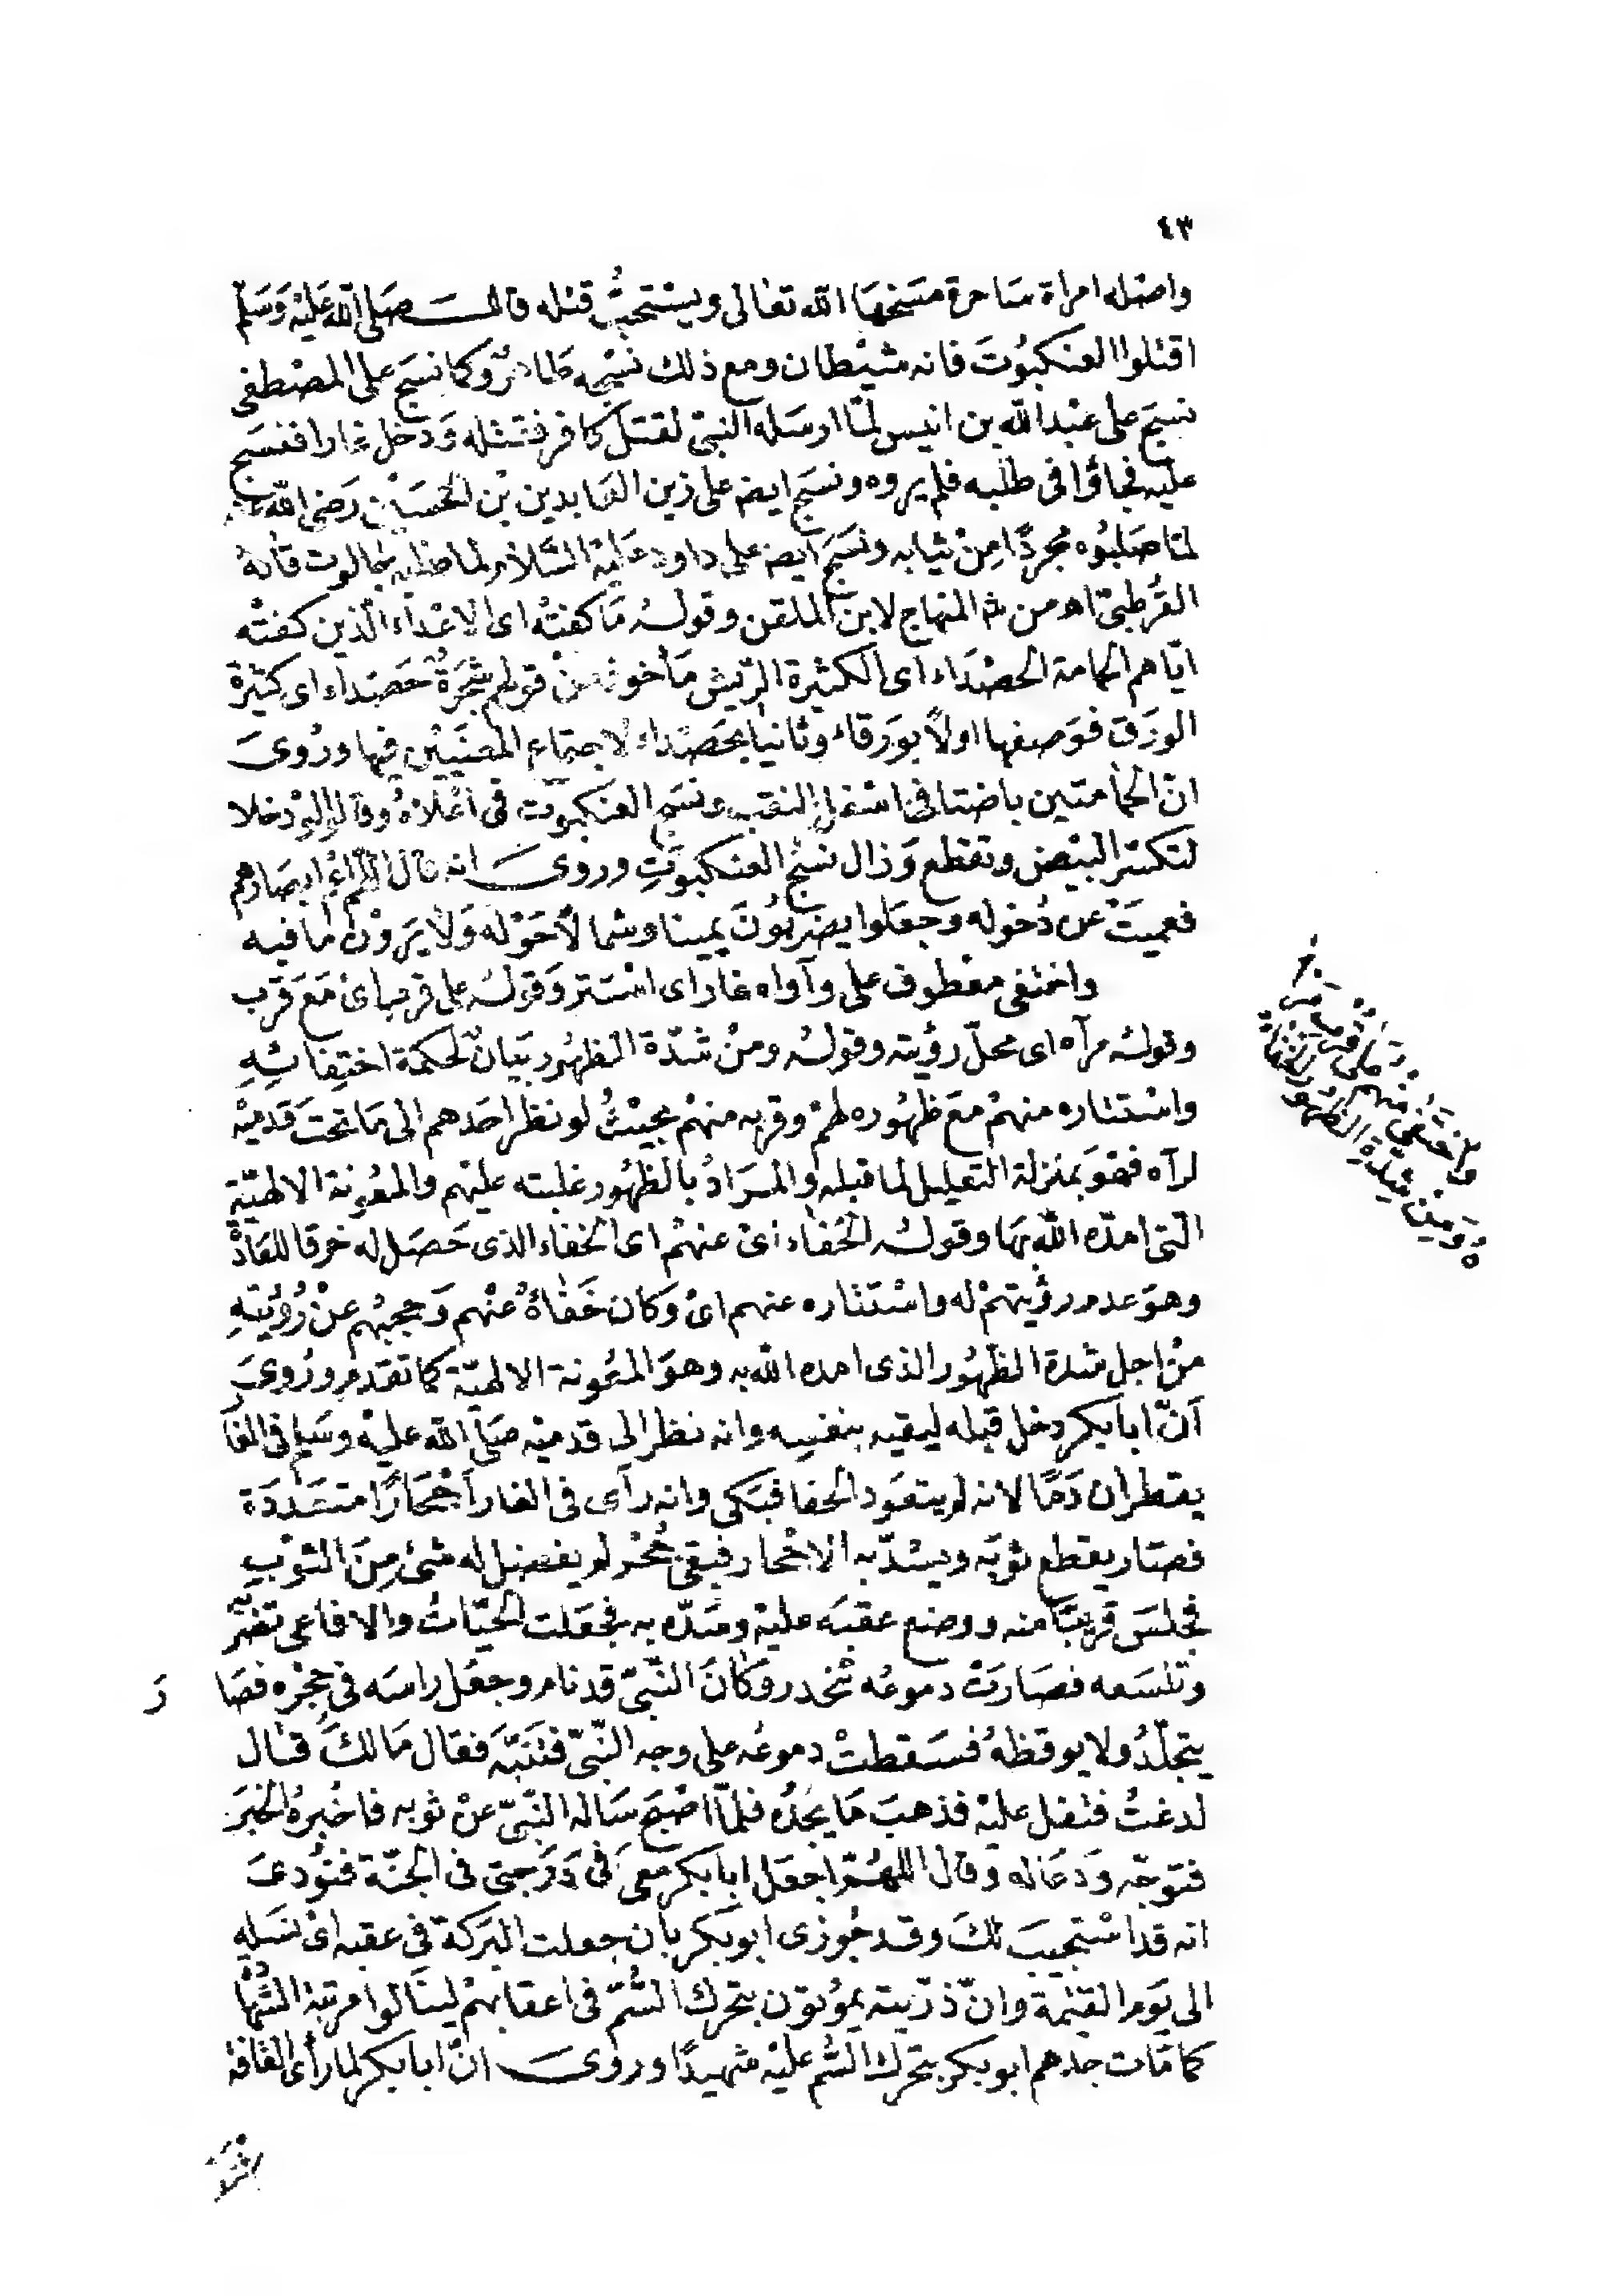 ٤٣
واصله امراة ساحرة مسخها الله تعالى ويستحبُّ قتله قال صَلى الله عَليْه وَسَلم
اقتلوا العنكبُوتَ فانه شيْطان ومع ذلك نسْجه طاهرٌ وكما نسَج على المصْطفى
نسَج على عبْد الله بن انيس لمّا ارسَله النبىّ لقتل كافر فقتله وَدخل غارا فنسَج
عليْه فجاؤا فى طلبه فلم يروه ونسَج ايضا على زين العابدين بْن الحسَيْن رَضى الله عنه
لمّا صَلبُوه مُجردًا مِنْ ثيابه ونسَج ايضا على داود عَليْه السَّلام لما طلبه جالوت قالهُ
القُرطبىّ اه من ش المنهاج لابن الملقن وقولهُ مَا كفتْه اى الاعْداء الّذين كفتْه
ايّاهم الحمامة الحصْدَاء اى الكثيرة الرّيش مَأخوذ منْ قولهم شجَرَةٌ حَصْداء اى كثيرَة
الورَق فوَصفها اولاً بوَرقاء وثانياً بحَصْداء لاجتماع المعنَييْن فيها ورُوىَ
انّ الحمامتين باضتا فى اسْفل النقب ونسَج العنكبوت فى اعْلاهُ وقالوا لوْ دخلا
لتكسّر البيْض وتقطع وَزال نسْج العنكبوتِ وروى انه قال اللهم اعْم ابصَارهم
فعميَتْ عن دُخوله وجعَلوا يضربُونَ يمينا وشمالاً حَوْله وَلا يَرَوْن مَا فيه
واختفى معْطوف على وآواه غار اى اسْتتر وَقولهُ على قرب اى مَعَ قرْب
وقوله مرآه اى محلّ رؤيته وقولهُ ومنْ شدّة الظهُور بَيانٌ لحكمة اختِفائِهِ
واسْتتاره منهمْ معَ ظهُوره لهمْ وقربه منهمْ بحيْثُ لو نظر احَدهم الى مَا تحتَ قدميْه
لرآه فهوَ بمنزلة التعليل لما قبله والمرَادُ بالظهُور غلبته عليْهم والمعُونة الالهيّة
الّتى امدّه الله بهَا وقولهُ الخَفاء اىْ عنهمْ اى الخفاء الذى حَصَل له خرقا للعَادْة
وهوَ عدم رؤيتهمْ له واسْتتاره عنهم اىْ وَكان خَفاؤهُ عنْهم وَحجبُهم عنْ رُؤيَتِهِ
منْ اجل شدة الظهُور الذى امده الله به وهوَ المعُونة الالهيّة كما تقدم ورُوىَ
أنّ ابا بكر دخل قبله ليقيه بنفسِه وانه نظر الى قدميْه صَلى الله عليْه وسَلم فى الغا
يقطران دَمًا لانه لم يتعَود الحفا فبَكى وانه رآى فى الغار أحْجارًا متعَدّدَة
فصَار يقطع ثوبَه ويسْدّ به الاحْجار فبقىَ جُحْر لم يفضل له شئ مِنَ الثوْب
فجلسَ قريبًا منه ووضع عقبَه عليْه وسَدّه به فجعَلت الحيّاتُ والافاعى تضْربُه
وتلسَعه فصَارَتْ دموعُه تنْحدر وَكانَ النَّبىّ قد نام وجعَل راسَه فى حِجْره فصَا رَ
يتجلّدُ ولا يوقظهُ فسَقطتْ دموعُه على وجه النَّبىّ فتنَبَّه فقال مَالكَ قال
لدغتُ فتفل عليْه فذهبَ مَا يجدُه فلمّا اصْبحَ سَاله النَّبىّ عنْ ثوبه فاخْبرهُ الخبَر
فتوجّه وَدعَا له وَقال اللهُمّ اجعَل ابا بكر معىَ فى دَرَجتى فى الجنّة فنُودىَ
انه قد اسْتجيبَ لكَ وقد جُوزى ابو بكر بان جعلت البَركة فى عقبه اىْ نسَله
الى يَوم القيٰمة وانّ ذرّيته يموُتون بتحرك السُّمّ فى اعقابهمْ لينَالوا مرتبة الشّهدا
كما مَات جدهم ابو بكر بتحرك السّم عليْه شهيدًا وروى انّ ابا بكر لما رأى القافة
وَاخْتَفَى مِنْهُم عَلَى قُرْبِ مَرْآ
هُ وَمِنْ شِدَّةِ الظُّهُورِ الْخَفَاءُ